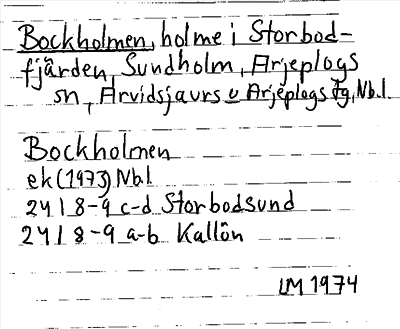 Bockholmen, holme i Storbod-
fjärden, Sundholm, Arjeplogs
sn, Arvidsjaurs o Arjeplogs tg, Nb.l.
Bockholmen
ek (1973) Nb.l
24I 8-9 c-d Storbodsund
24I 8-9 a-b Kallön
LM 1974